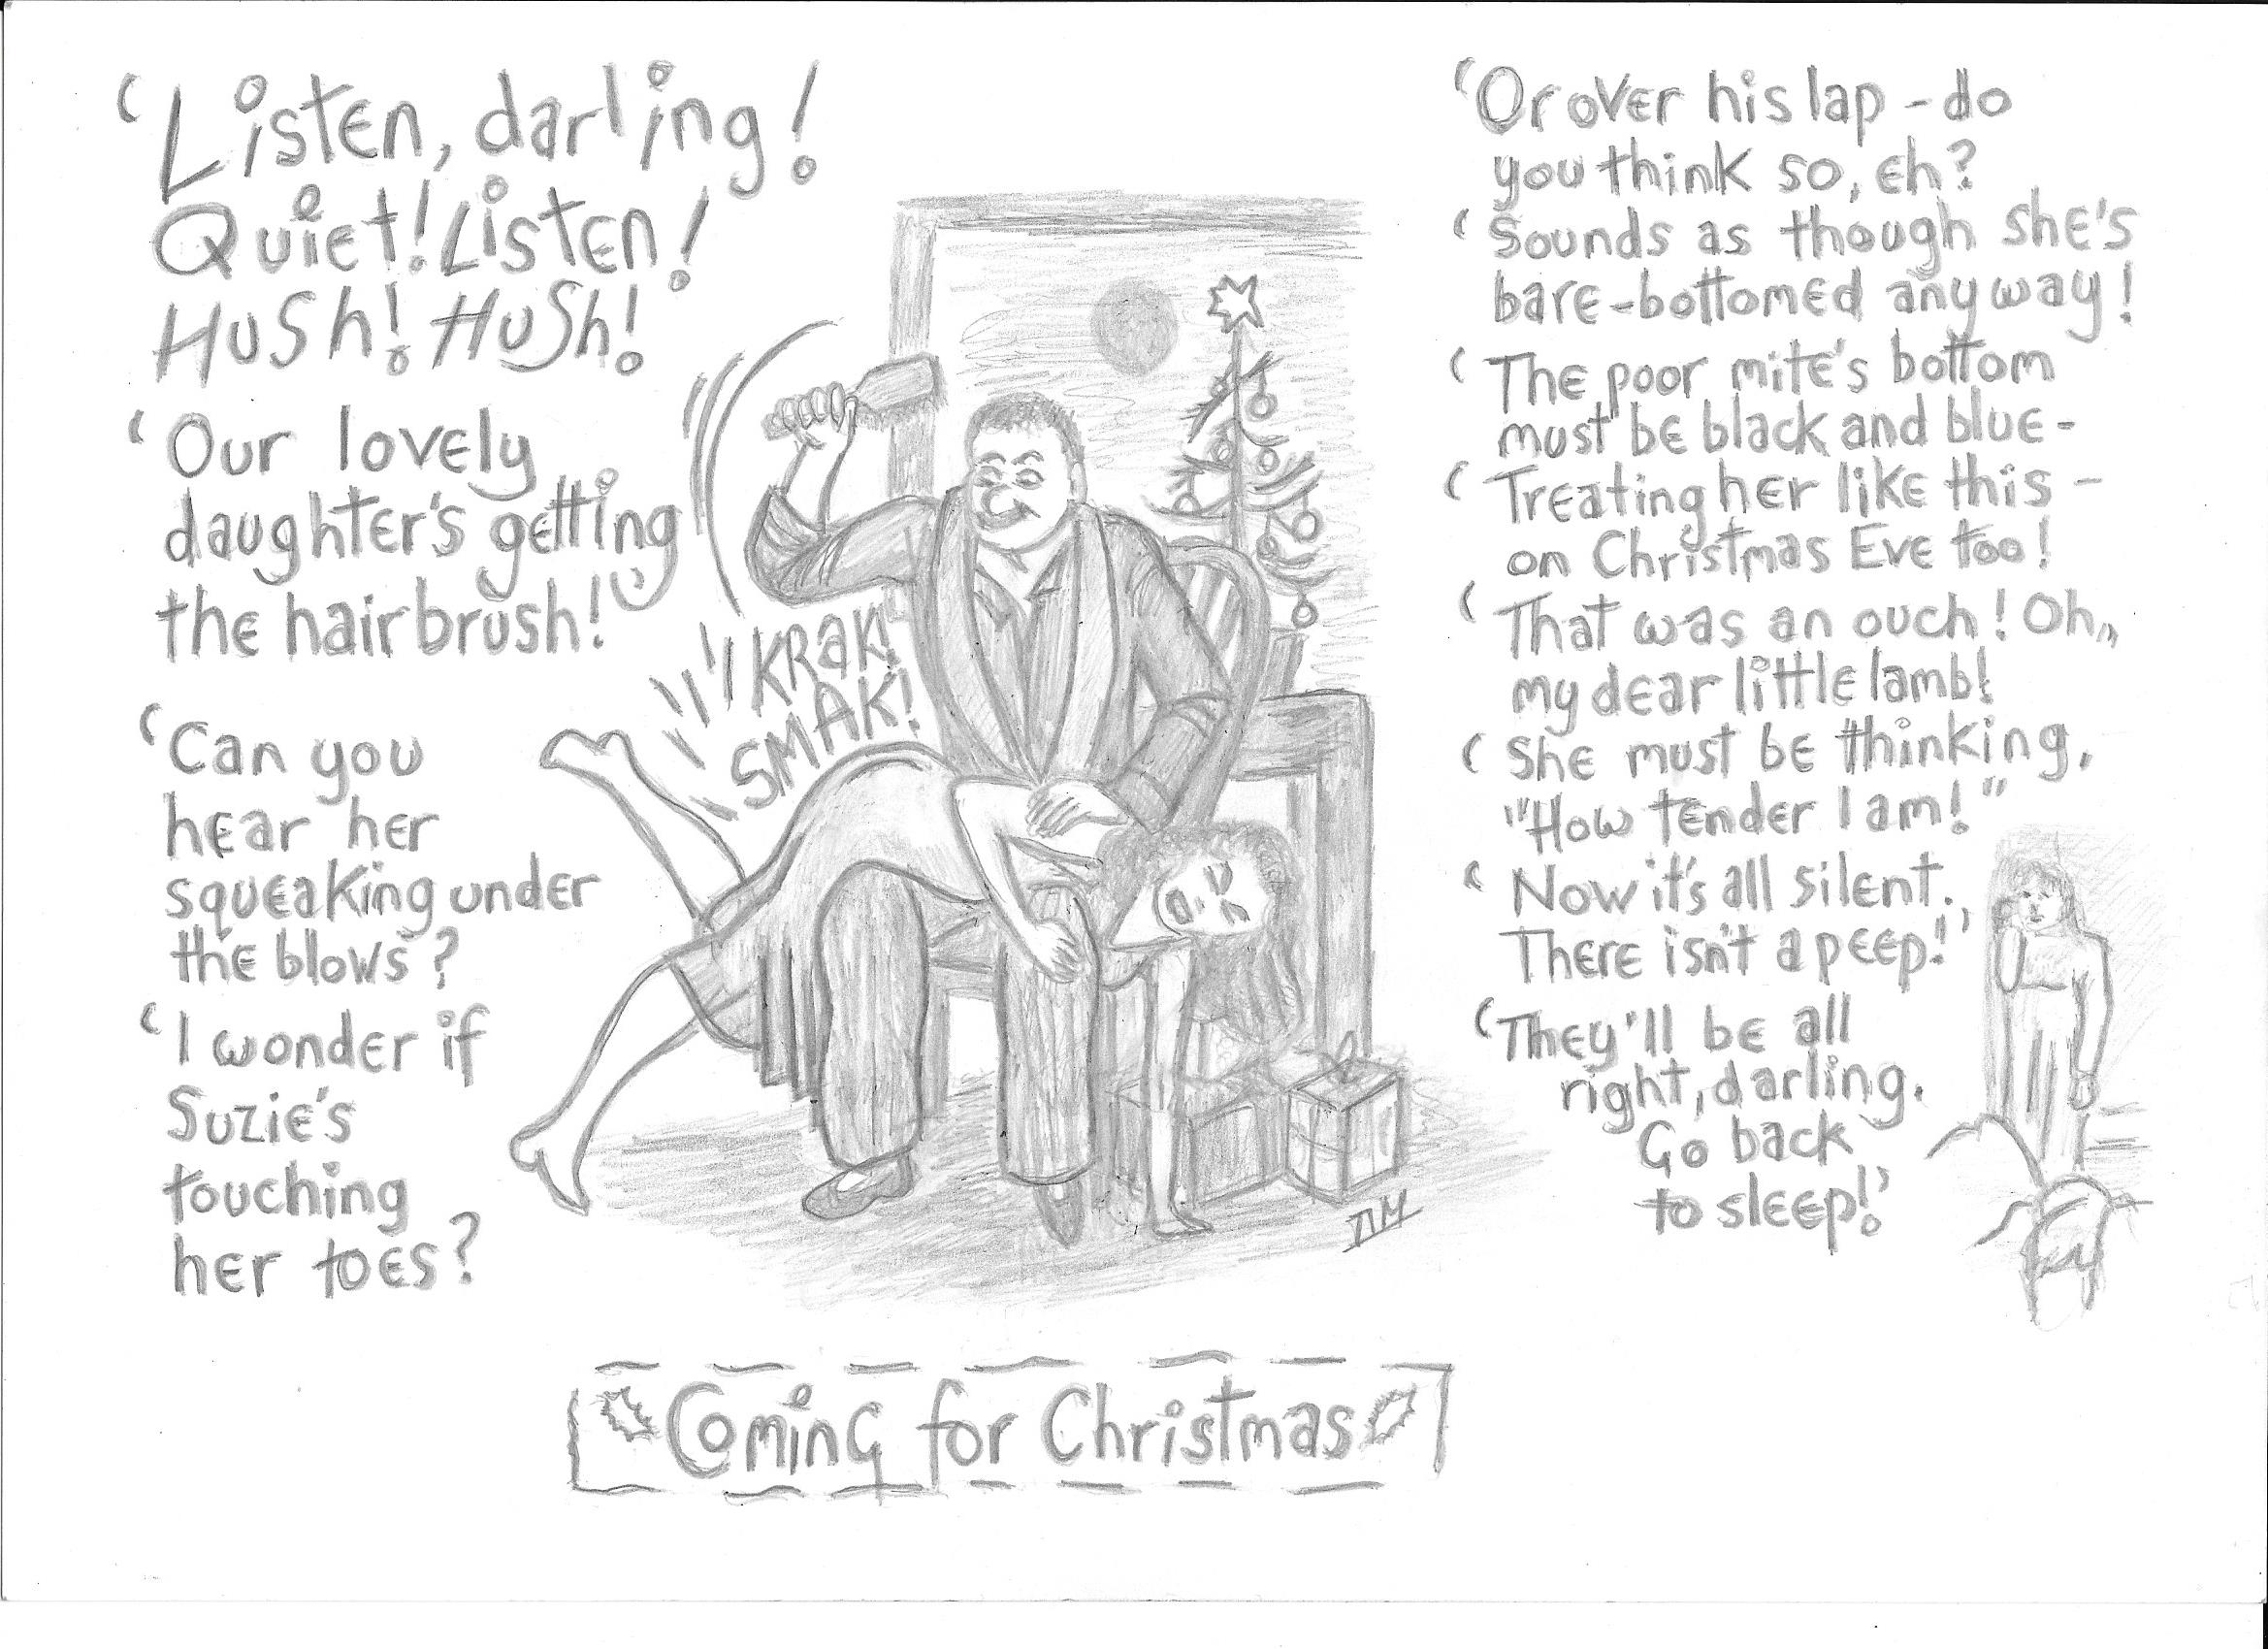 ‘Listen, darling!
Quiet! Listen!
Hush! Hush!
‘Our lovely
daughter's getting
the hairbrush!
‘Can you
hear her
squeaking under
the blows?
‘I wonder if
Suzie's
touching
her toes?
KRAK!
SMAK!
‘Or over his lap - do
you think so, eh?
‘Sounds as though she's
bare-bottomed anyway!
‘The poor mite's bottom
must be black and blue -
‘Treating her like this -
on Christmas Eve too!
‘That was an ouch! Oh,,
my dear little lamb!
‘She must be thinking,
"How tender I am!"
‘Now it's all silent.,
There isn't a peep!’
‘They'll be all
right, darling.
Go back
to sleep!’
Coming for Christmas